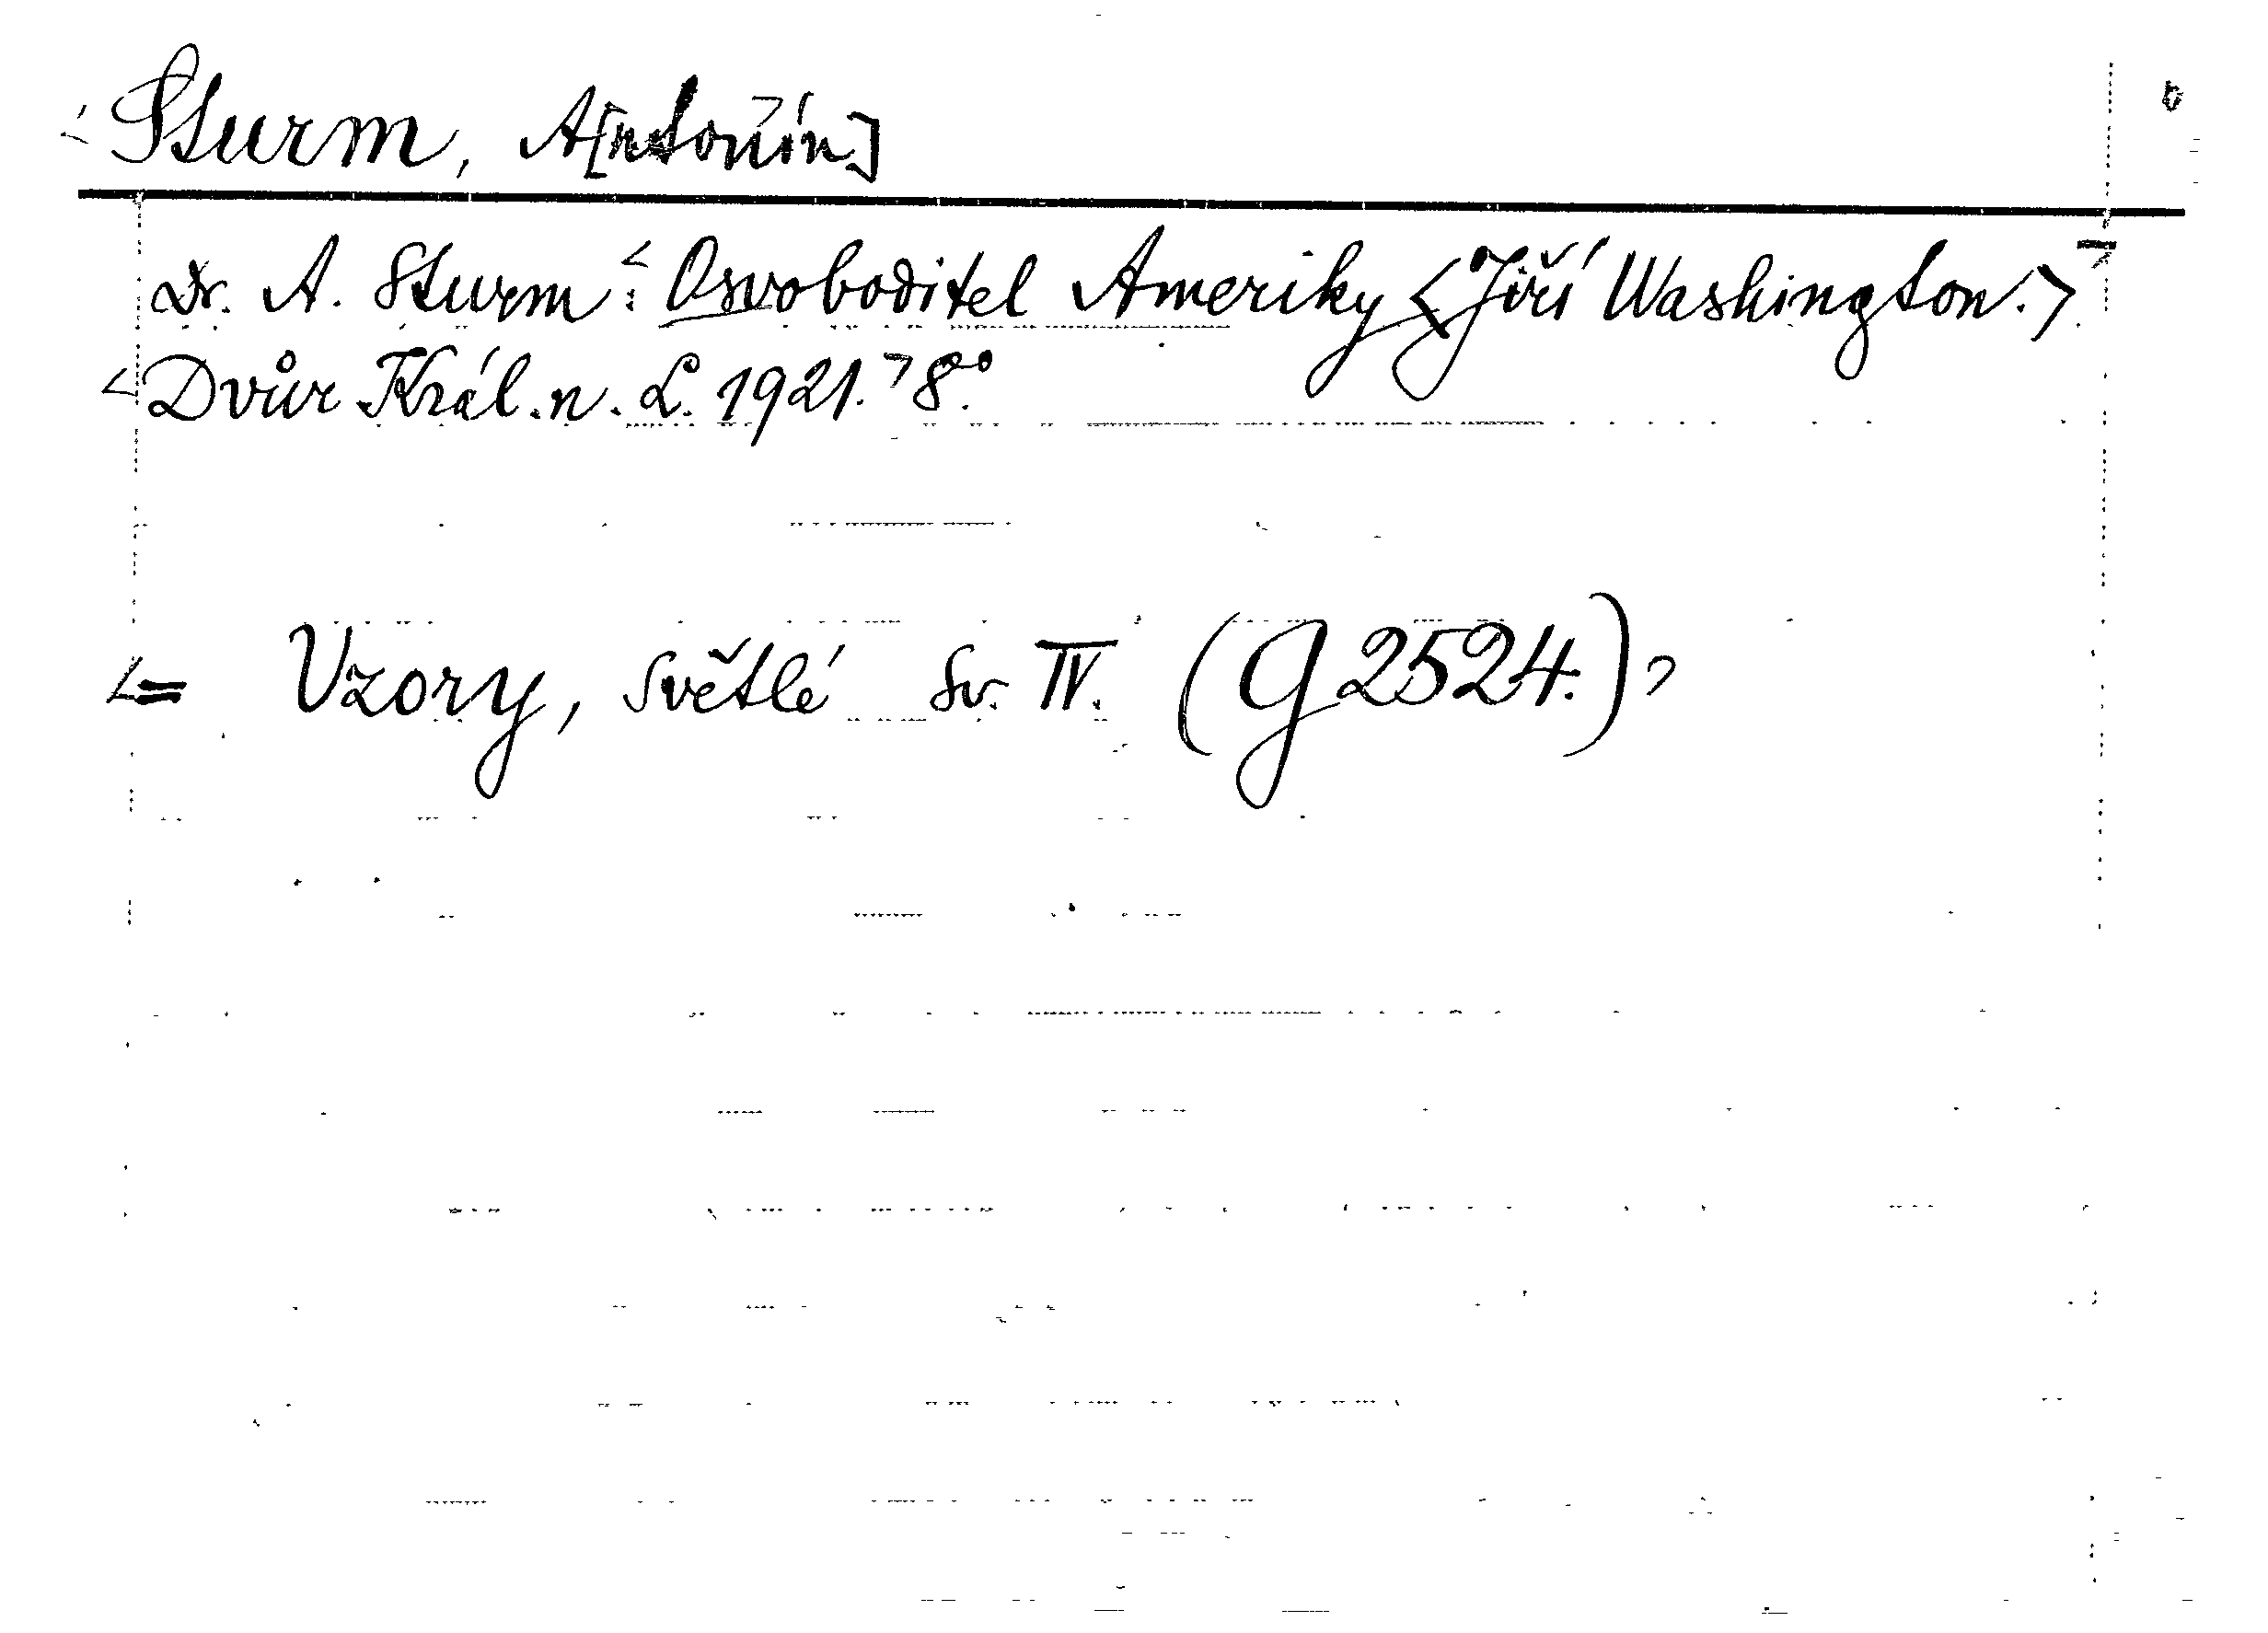 Sturm, A[ntonín]
Dr. A. Sturm: Osvoboditel Ameriky <Jiří Washington.>
Dvůr Král. n. L. 1921. 8°.
= Vzory, světlé sv. IV. (G 2524.)